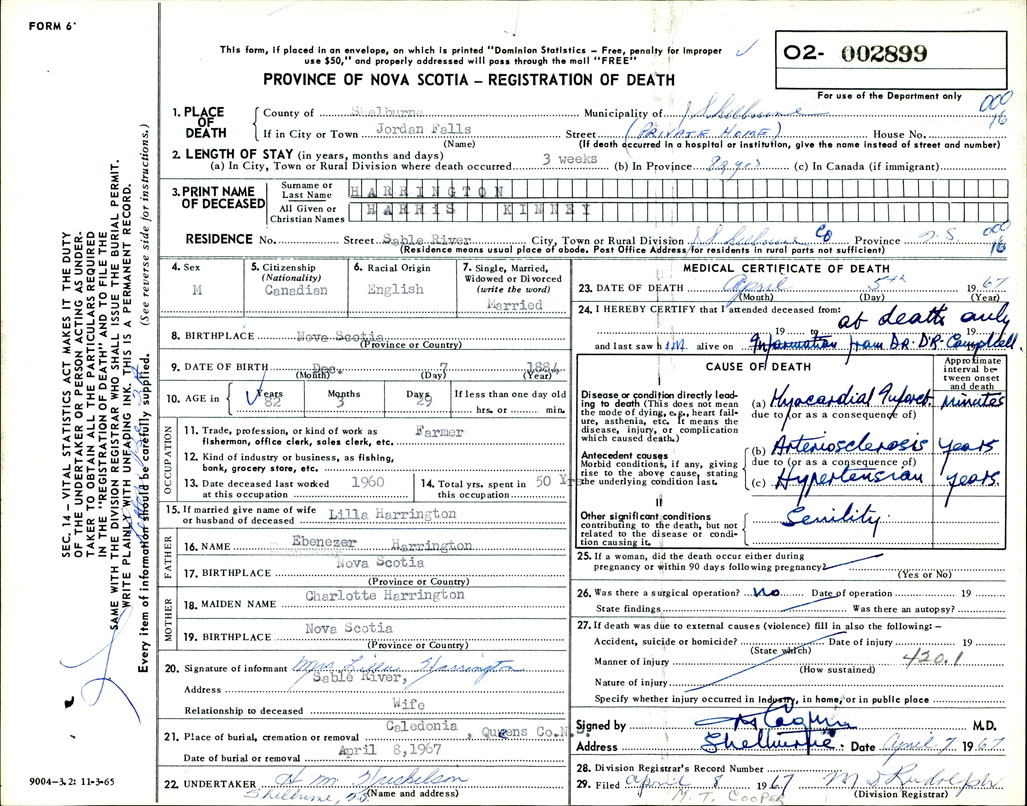 FORM 6
This form, if placed in an envelope, on which is printed "Dominion Statistics – Free, penalty for improper
use $50," and properly addressed will pass through the mail "FREE"
PROVINCE OF NOVA SCOTIA – REGISTRATION OF DEATH
02- 002899
For use of the Department only
1. PLACE OF DEATH
County of Shelburne Municipality of Shelburne 000
16
If in City or Town Jordan Falls Street (PRIVATE HOME) House No.
(Name) (If death occurred in a hospital or institution, give the name instead of street and number)
2. LENGTH OF STAY (in years, months and days)
(a) In City, Town or Rural Division where death occurred 3 weeks (b) In Province 82 yrs (c) In Canada (if immigrant)
3. PRINT NAME OF DECEASED
Surname or Last Name HARRINGTON
All Given or Christian Names HARRIS KINNEY
RESIDENCE No. Street Sable River City, Town or Rural Division Shelburne Co Province N.S. 000
16
(Residence means usual place of abode. Post Office Address for residents in rural parts not sufficient)
4. Sex
M
5. Citizenship
(Nationality)
Canadian
6. Racial Origin
English
7. Single, Married,
Widowed or Divorced
(write the word)
Married
8. BIRTHPLACE Nova Scotia
(Province or Country)
9. DATE OF BIRTH Dec. 7 1884
(Month) (Day) (Year)
10. AGE in Years Months Days If less than one day old
82 3 29 hrs. or min.
OCCUPATION
11. Trade, profession, or kind of work as Farmer
fisherman, office clerk, sales clerk, etc.
12. Kind of industry or business, as fishing,
bank, grocery store, etc.
13. Date deceased last worked 1960
at this occupation
14. Total yrs. spent in 50 Yrs
this occupation
15. If married give name of wife
or husband of deceased Lilla Harrington
FATHER
16. NAME Ebenezer Harrington
17. BIRTHPLACE Nova Scotia
(Province or Country)
MOTHER
18. MAIDEN NAME Charlotte Harrington
19. BIRTHPLACE Nova Scotia
(Province or Country)
20. Signature of informant Mrs Lilla Harrington
Address Sable River,
Relationship to deceased Wife
21. Place of burial, cremation or removal Caledonia, Queens Co.N.S.
Date of burial or removal April 8,1967
22. UNDERTAKER
Shelburne, N.S. (Name and address)
MEDICAL CERTIFICATE OF DEATH
23. DATE OF DEATH April 5th 1967
(Month) (Day) (Year)
24. I HEREBY CERTIFY that I attended deceased from: at death only
19 to 19
and last saw him alive on Information from Dr. D.R. Campbell
CAUSE OF DEATH
Approximate
interval be-
tween onset
and death
Disease or condition directly lead-
ing to death (This does not mean
the mode of dying, e.g., heart fail-
ure, asthenia, etc. It means the
disease, injury, or complication
which caused death.)
(a) Myocardial Infarct. minutes
due to (or as a consequence of)
Antecedent causes
Morbid conditions, if any, giving
rise to the above cause, stating
the underlying condition last.
(b) Arteriosclerosis years
due to (or as a consequence of)
(c) Hypertension years.
II
Other significant conditions
contributing to the death, but not
related to the disease or condi-
tion causing it.
Senility.
25. If a woman, did the death occur either during
pregnancy or within 90 days following pregnancy?
(Yes or No)
26. Was there a surgical operation? no Date of operation 19
State findings Was there an autopsy?
27. If death was due to external causes (violence) fill in also the following: –
Accident, suicide or homicide? Date of injury 19
(State which)
Manner of injury 420.1
(How sustained)
Nature of injury
Specify whether injury occurred in Industry, in home, or in public place
Signed by M.D.
Address Shelburne Date April 7 1967
28. Division Registrar's Record Number
29. Filed April 8 1967
M. T. COOPER (Division Registrar)
SEC. 14 – VITAL STATISTICS ACT MAKES IT THE DUTY
OF THE UNDERTAKER OR PERSON ACTING AS UNDER-
TAKER TO OBTAIN ALL THE PARTICULARS REQUIRED
IN THE "REGISTRATION OF DEATH" AND TO FILE THE
SAME WITH THE DIVISION REGISTRAR WHO SHALL ISSUE THE BURIAL PERMIT.
WRITE PLAINLY WITH UNFADING INK. THIS IS A PERMANENT RECORD.
Every item of information should be carefully supplied. (See reverse side for instructions.)
9004-3.2: 11-3-65